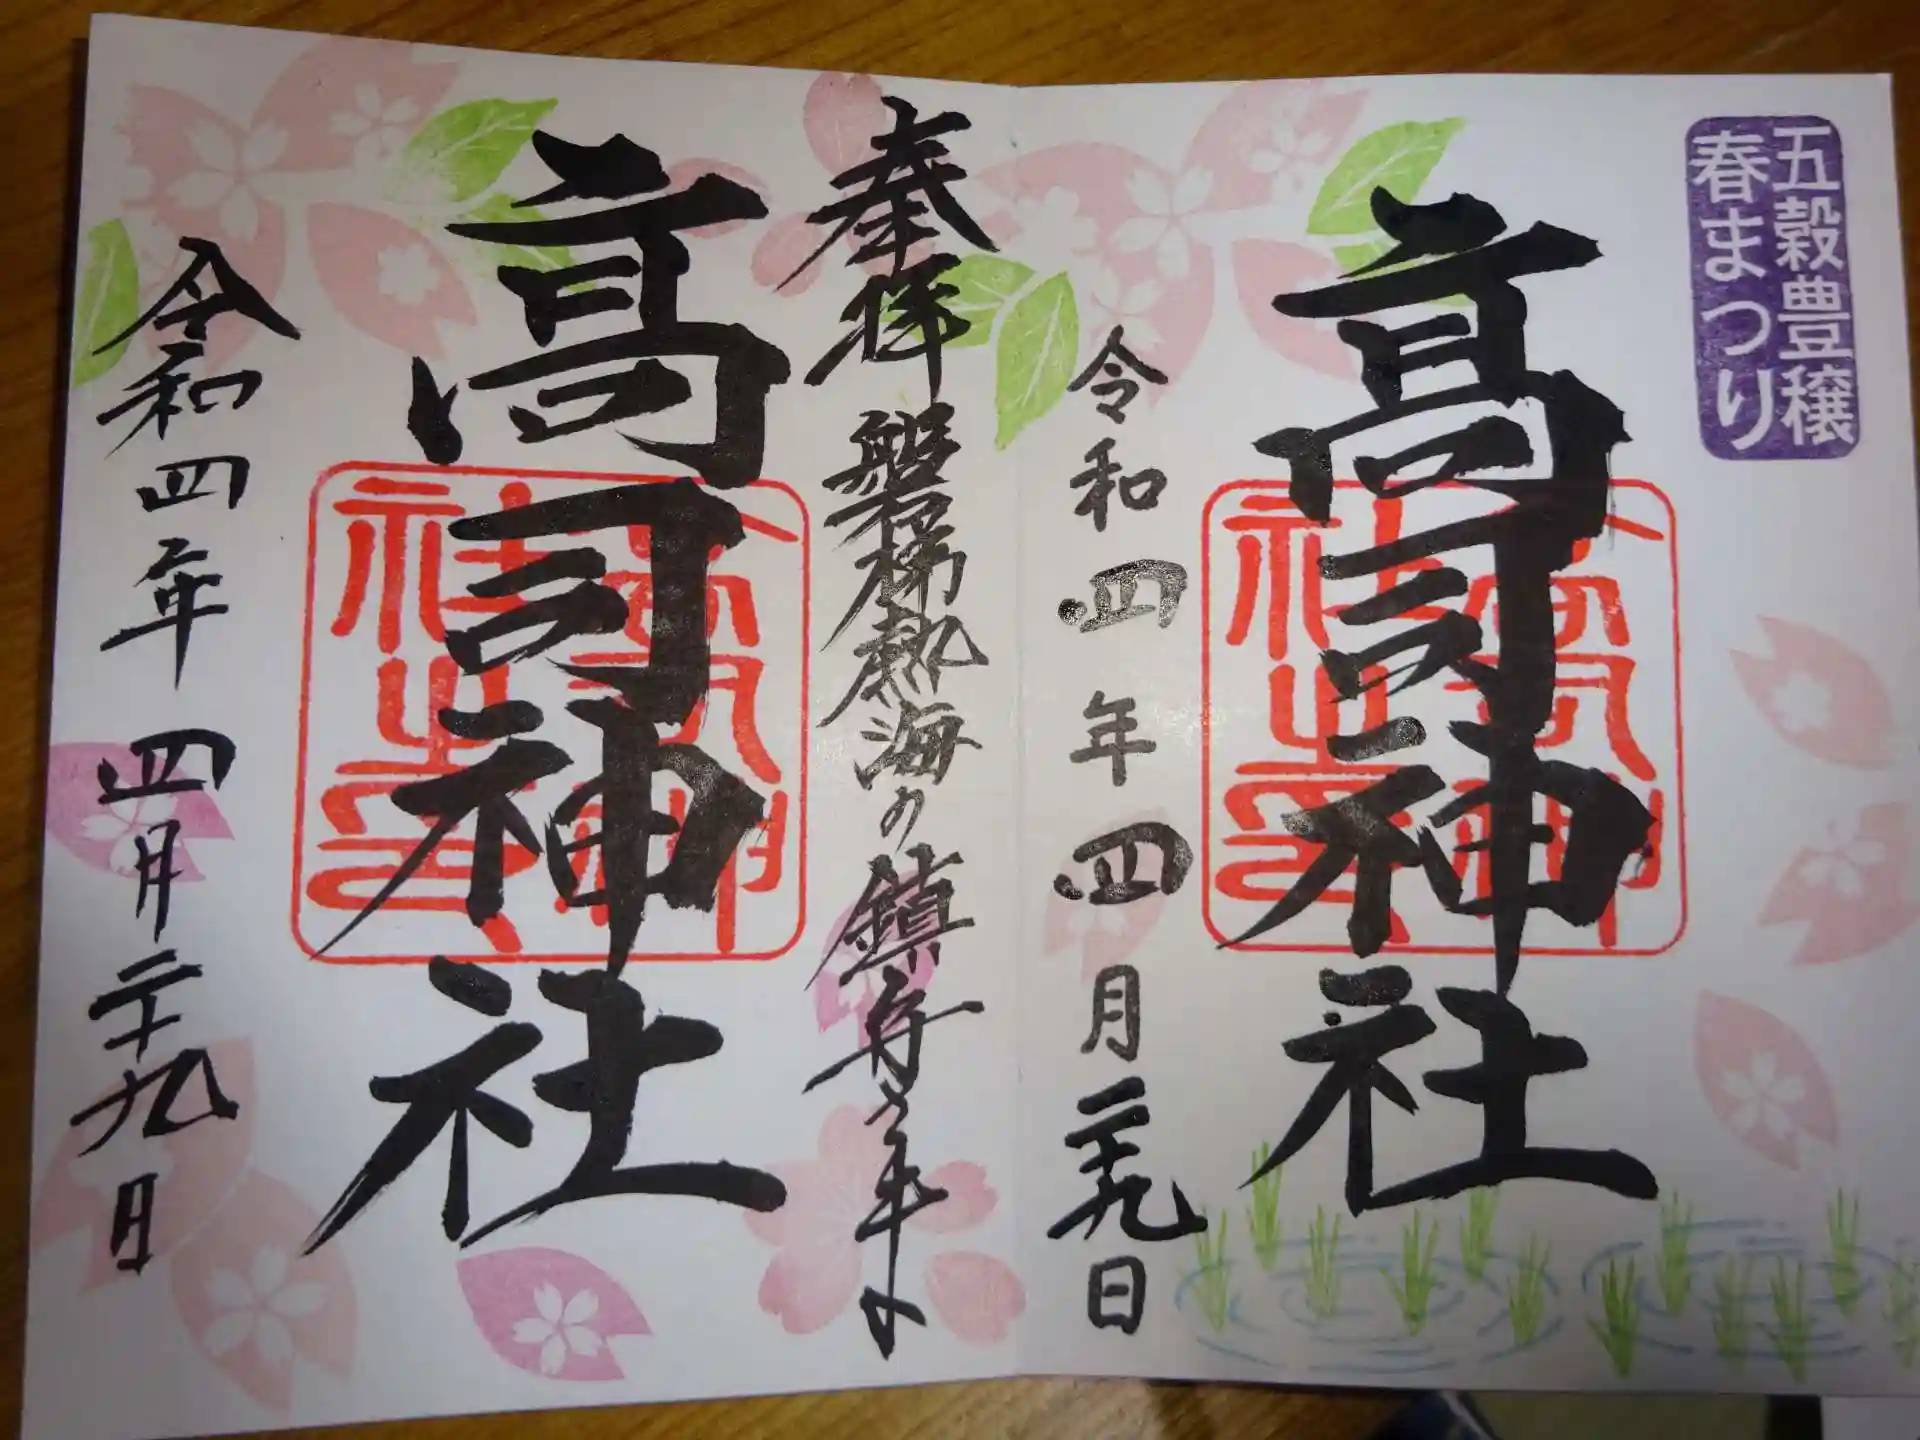 五穀豊穣
春まつり
高司神社
令和四年四月二十九日
奉拝
磐梯熱海の鎮守さま
高司神社
令和四年四月二十九日